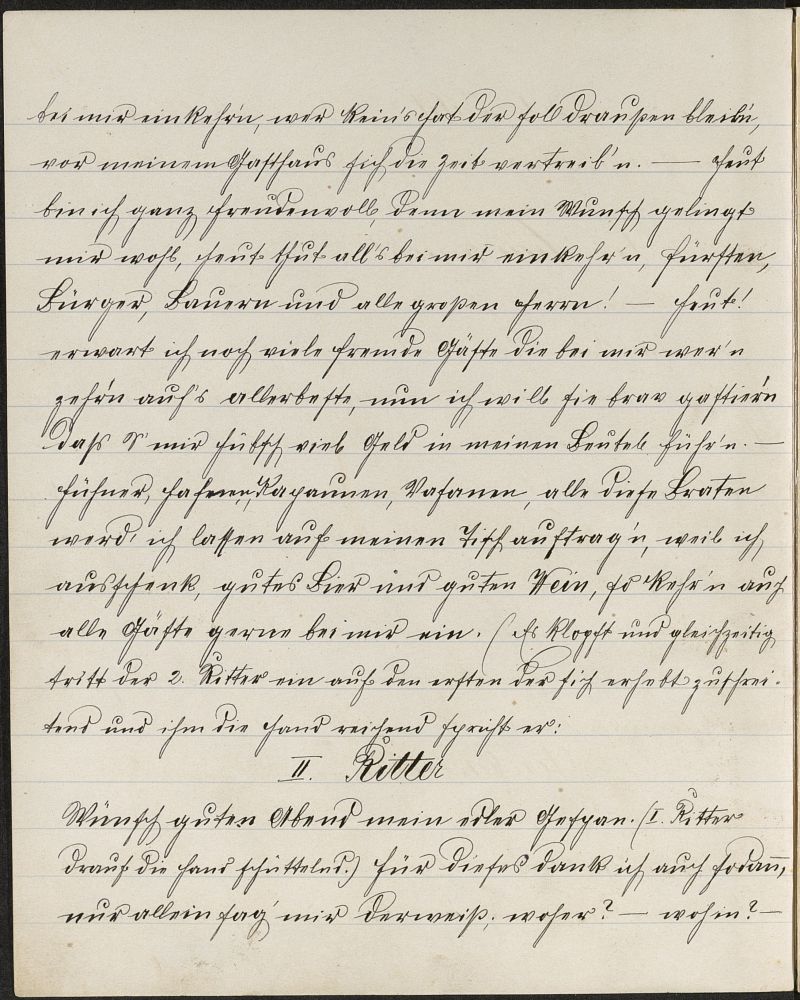 bei mir einkehr'n, wer kein's hat der soll draußen bleib'n,
vor meinem Gasthaus sich die Zeit vertreib'n. — Heut
bin ich ganz freudenvoll, denn mein Wunsch gelingt
mir wohl, heut thut all's bei mir einkehr'n, Fürsten,
Bürger, Bauern und alle großen Herrn! — Heut!
erwart ich noch viele fremde Gäste die bei mir wer'n
zehr'n auf's allerbeste, nun ich will sie brav gastier'n
daß S' mir hübsch viel Geld in meinen Beutel führ'n. —
Hühner, Hahnen, Kapaunen, Vasanen, alle diese Braten
werd' ich lassen auf meinen Tisch auftrag'n, weil ich
ausschenk, gutes Bier und guten Wein, so kehr'n auch
alle Gäste gerne bei mir ein. (Es klopft und gleichzeitig
tritt der 2. Ritter ein auf den ersten der sich erhebt zuschrei-
tend und ihm die Hand reichend spricht er:
II. Ritter
Wünsch guten Abend mein edler Gespan. (I. Ritter
drauf die Hand schüttelnd.) Für dieses dank ich auch sodann,
nur allein sag' mir derweiß, woher? — wohin? —